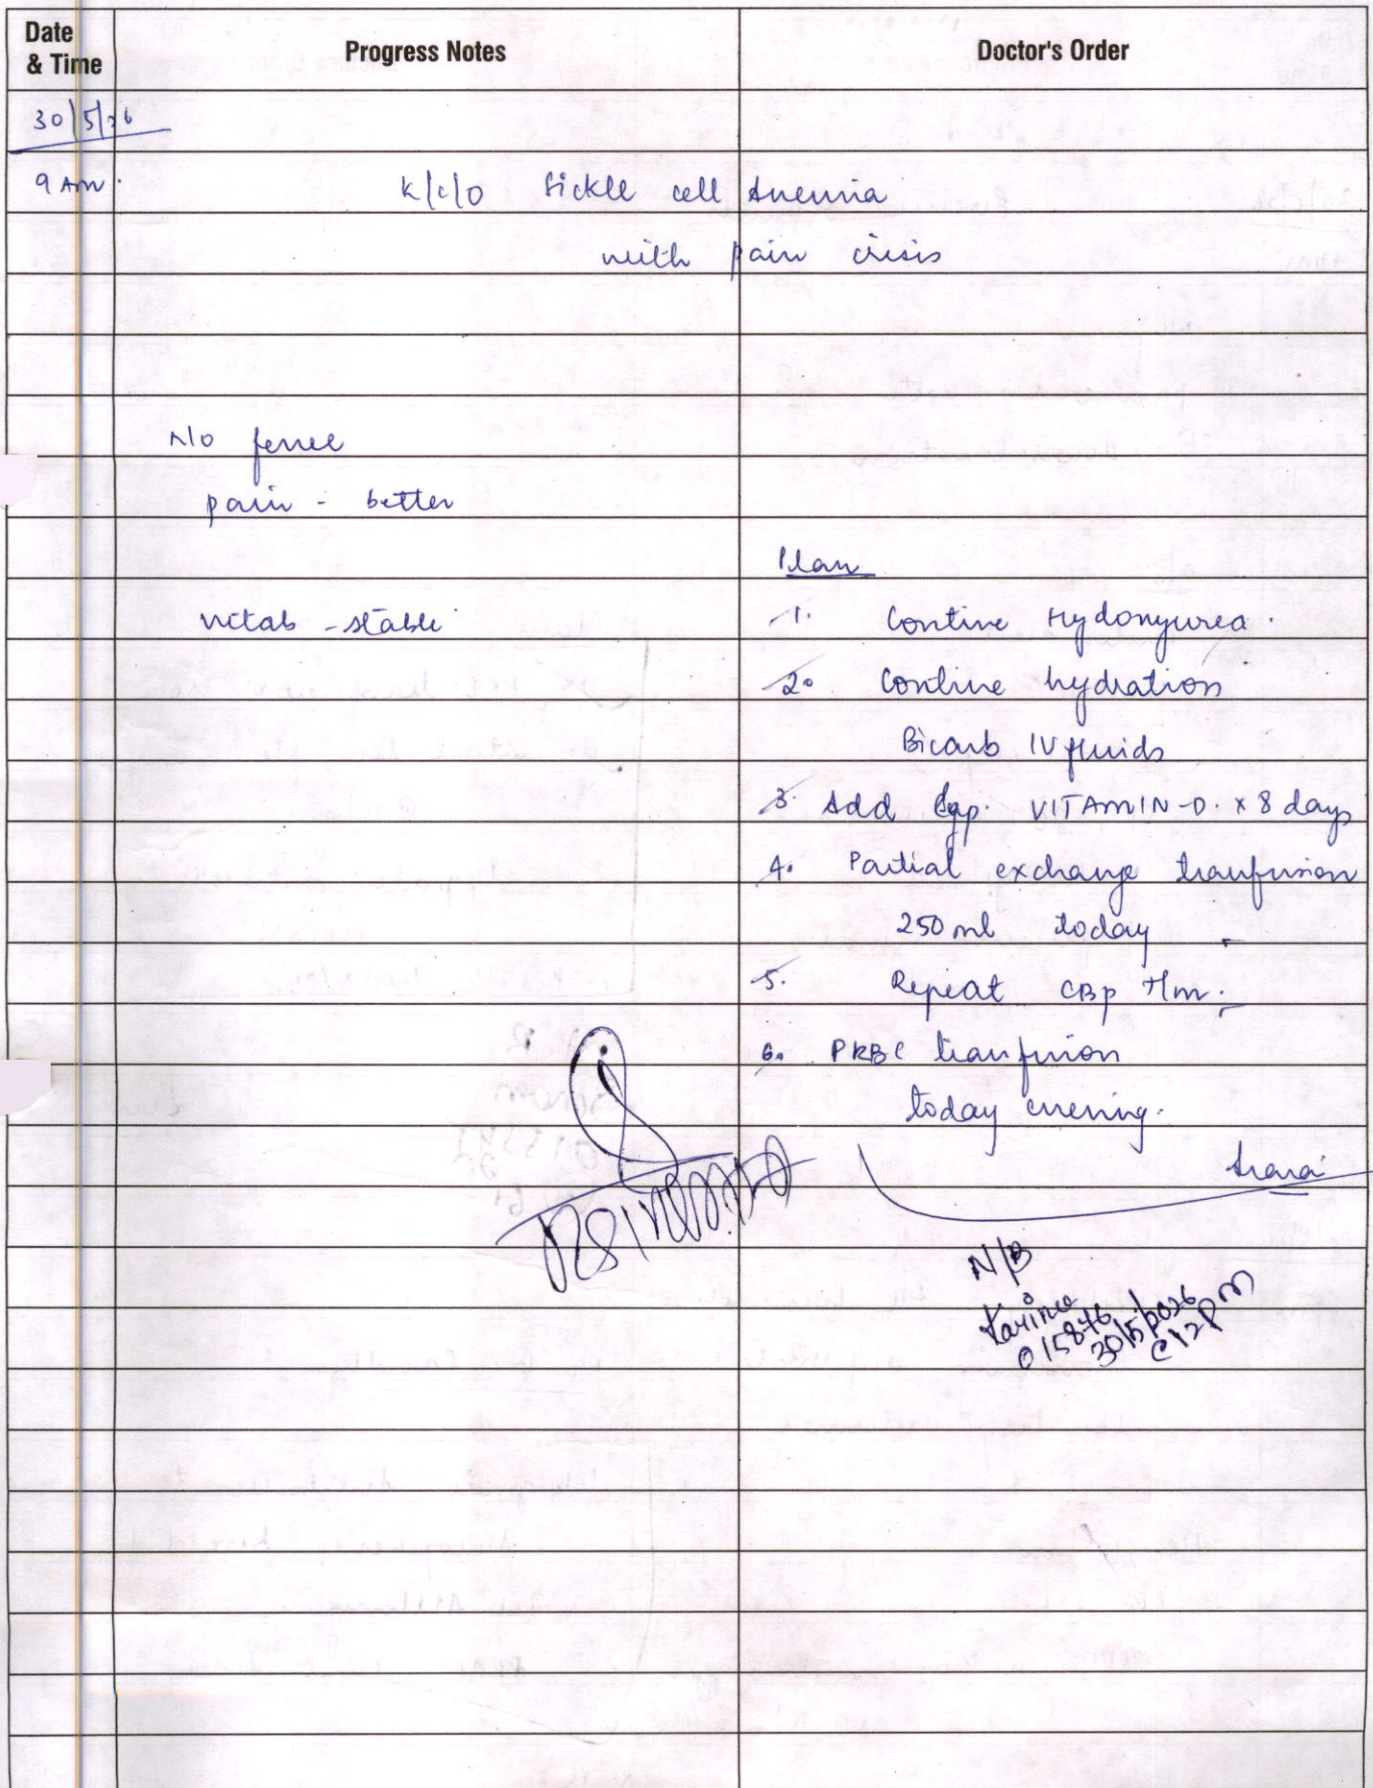 Date & Time
Progress Notes
Doctor's Order
30/5/26
9 Am.
K/c/o Sickle cell Anemia
with pain crisis
N/o fever
pain - better
Plan
vitals - stable
1. Contine Hydoxyurea.
2. Contine hydration
Bicarb IV fluids
3. Add VITAMIN-D. x 8 days
4. Partial exchange tranfusion
250 ml today
5. Repeat CBP
6. PRBC tranfusion
today evening.
N/B
015876
30/5/2026
@12pm